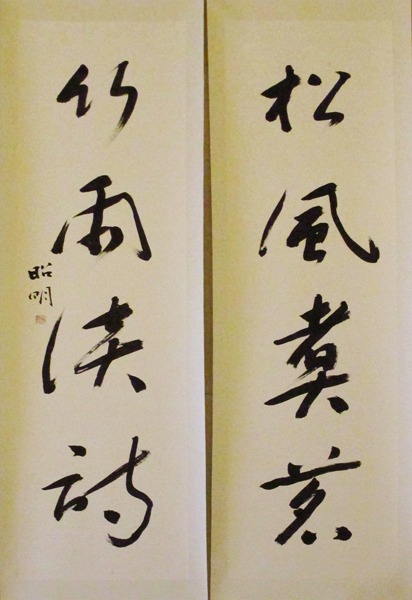 松風煑茗
竹雨談詩
昭明